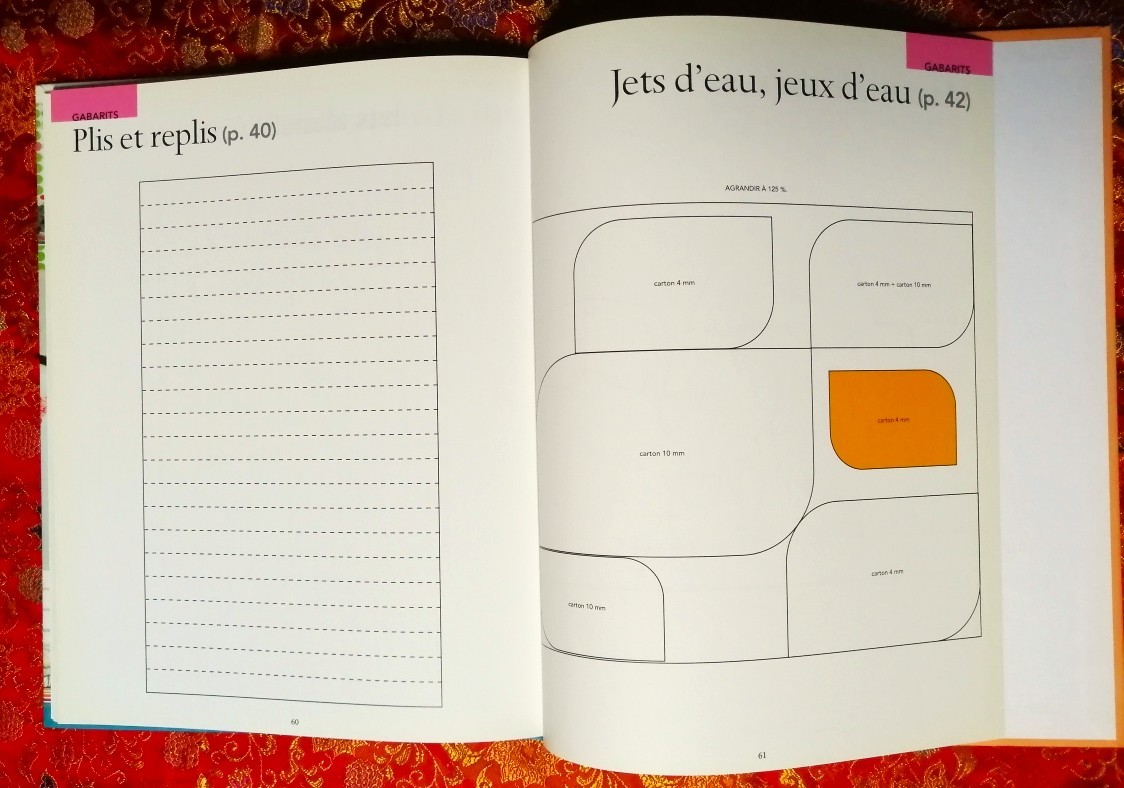 GABARITS
Plis et replis (p. 40)
60
GABARITS
Jets d'eau, jeux d'eau (p. 42)
AGRANDIR À 125 %.
carton 4 mm
carton 4 mm + carton 10 mm
carton 4 mm
carton 10 mm
carton 4 mm
carton 10 mm
61